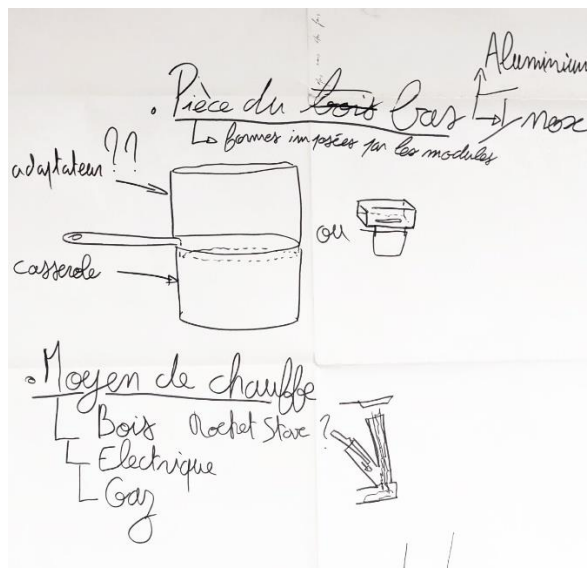 Aluminium
. Pièce du bois bas Inox
↳ formes imposées par les modules
adaptateur ??
ou
casserole
. Moyen de chauffe
Bois Rocket Stove ?
Electrique
Gaz